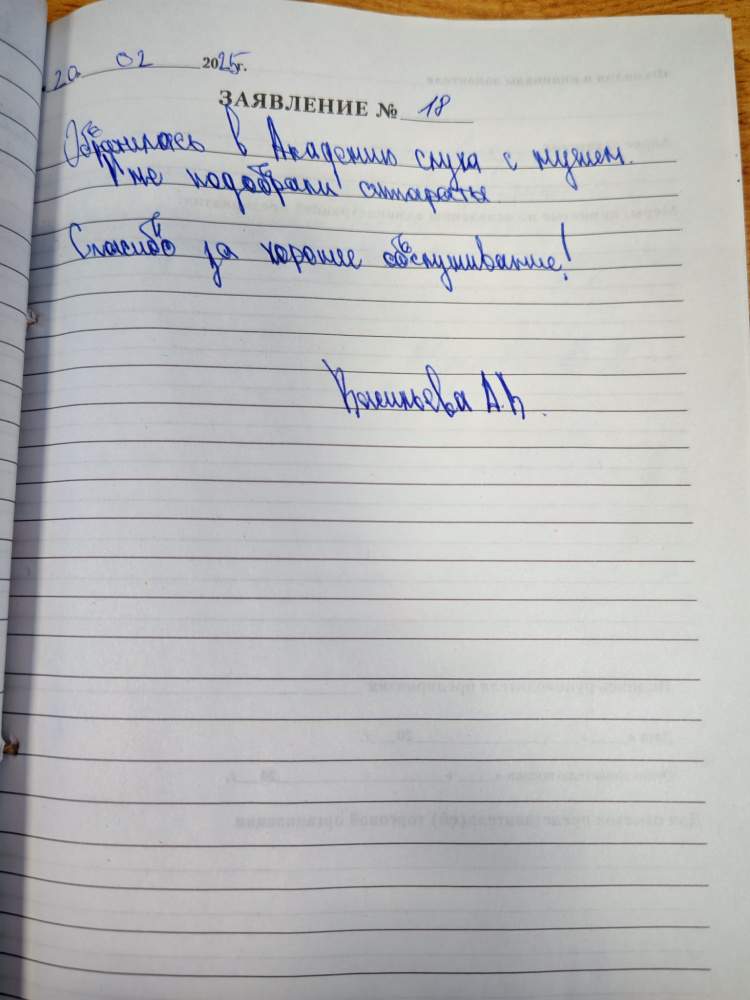 20 02 2025г.
ЗАЯВЛЕНИЕ № 18
Обратилась в Академию слуха с мужем.
Уже подобрали аппараты.
Спасибо за хорошее обслуживание!
Васильева А.В.